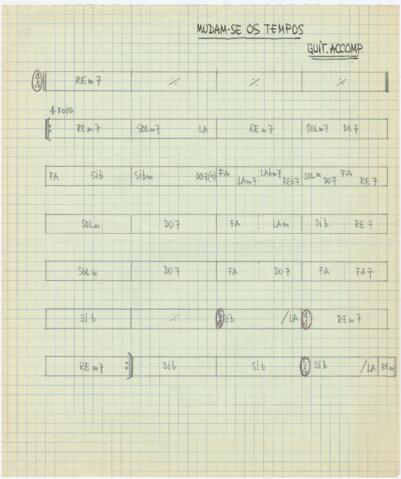 MUDAM-SE OS TEMPOS
GUIT. ACCOMP.
REm7 ٪ ٪ ٪
4 FOIS
REm7 SOLm7 LA REm7 SOLm7 DO7
FA Sib Sibm DO7(4) FA LAm7 LAbm7 REb7 SOLm DO7 FA RE7
SOLm DO7 FA LAm Sib RE7
SOLm DO7 FA DO7 FA FA7
Sib ٪ Sib /LA REm7
REm7 Sib Sib Sib /LA REm